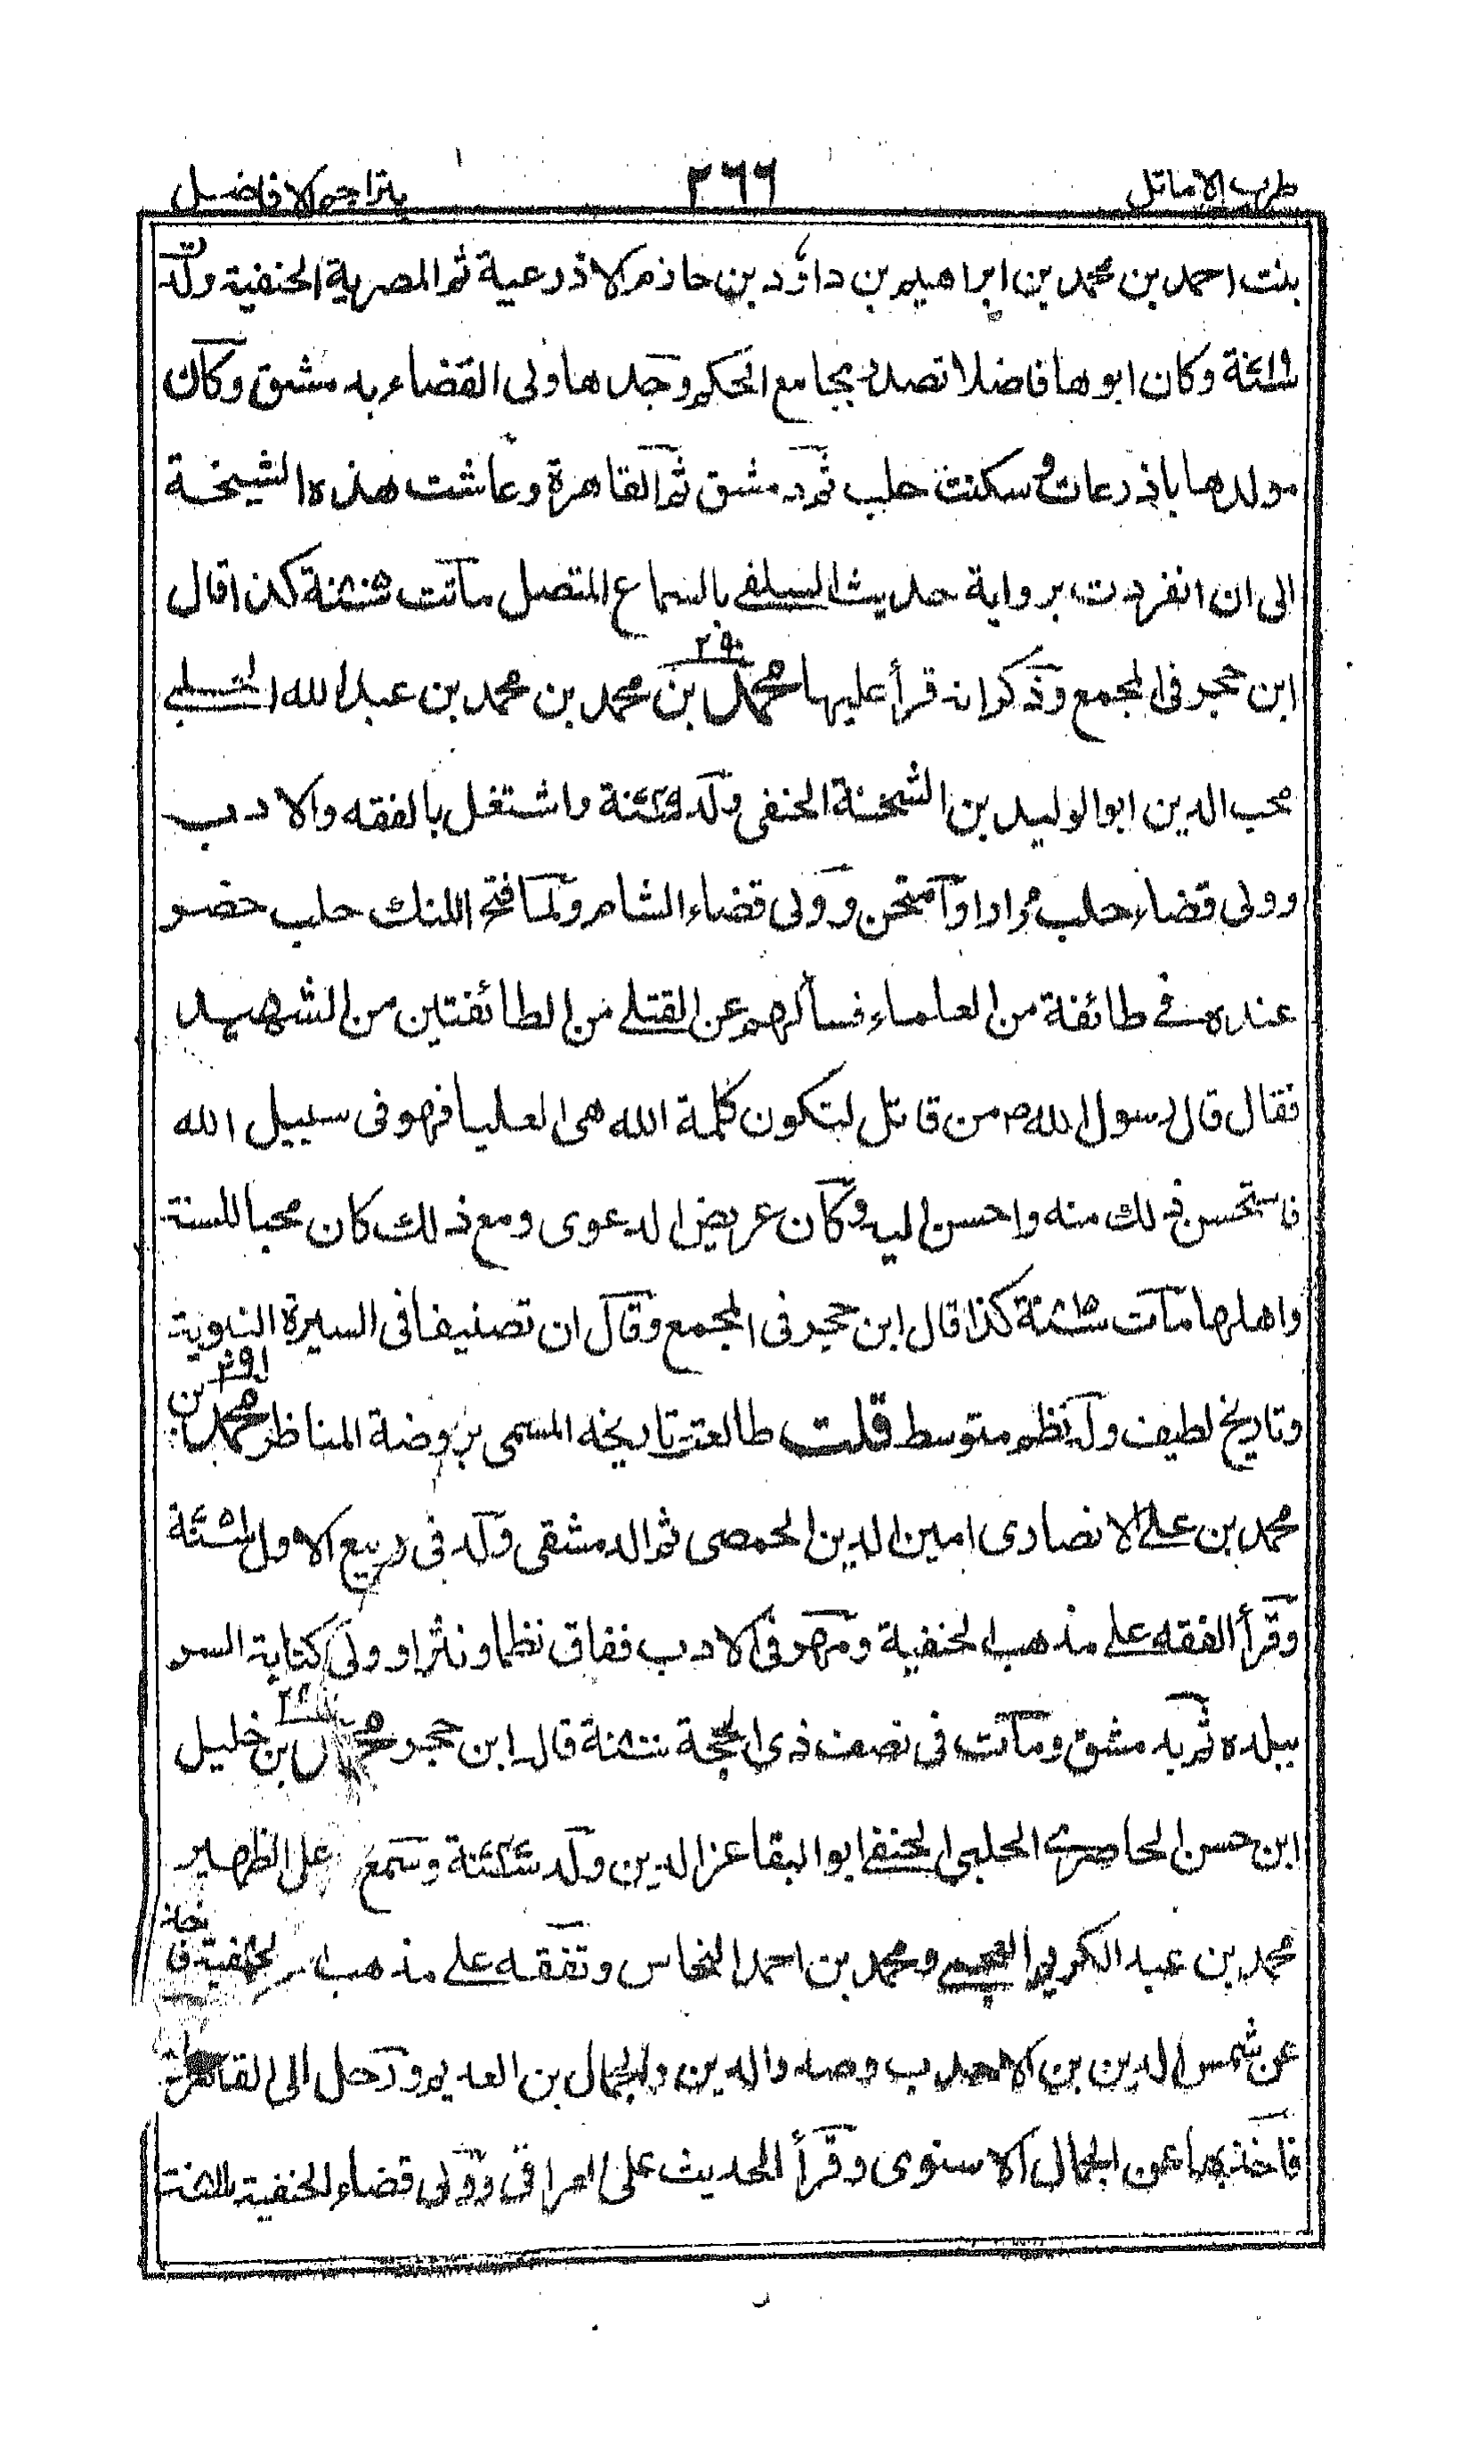 طرب الاماثل ٢٦٦ بتراجم الافاضل
بنت احمد بن محمد بن ابراهيم بن داؤد بن حازم الاذرعية ثم المصرية الحنفية ولدت
سنة وكان ابوها فاضلا تصدر بجامع الحكم وجدها ولى القضاء بدمشق وكان
مولدها باذرعات سكنت حلب ثم دمشق ثم القاهرة وعاشت هذه الشيخة
الى ان انفردت برواية حديث السلفى بالسماع المتصل ماتت سنة كذا قال
ابن حجر فى المجمع وذكر انه قرأ عليها ٢٩٠ محمد بن محمد بن محمد بن عبد الله الحلبى
محب الدين ابو الوليد بن الشحنة الحنفى ولد سنة واشتغل بالفقه والادب
وولى قضاء حلب مرارا وامتحن وولى قضاء الشام ولما فتح اللنك حلب حضر
عنده فى طائفة من العلماء فسألهم عن القتلى من الطائفتين من الشهيد
فقال قال رسول الله ص من قاتل لتكون كلمة الله هى العليا فهو فى سبيل الله
فاستحسن ذلك منه واحسن اليه وكان عريض الدعوى ومع ذلك كان محبا للسنة
واهلها مات سنة كذا قال ابن حجر فى المجمع وقال ان تصنيفا فى السيرة النبوية
وتاريخ لطيف وله نظم متوسط قلت طالعت تاريخه المسمى بروضة المناظر ٢٩١ محمد بن
محمد بن على الانصارى امين الدين الحمصى ثم الدمشقى ولد فى ربيع الاول سنة
وقرأ الفقه على مذهب الحنفية ومهر فى الادب ففاق نظما ونثرا وولى كتابة السر
ببلده ثم بدمشق ومات فى نصف ذى الحجة سنة قال ابن حجر محمد بن خليل
ابن حسن الحاضرى الحلبى الحنفى ابو البقا عز الدين ولد سنة وسمع على الظهير
محمد بن عبد الكريم العجمى ومحمد بن احمد النحاس وتفقه على مذهب الحنفية فاخذ
عن شمس الدين بن الاحدب وصدر الدين والجمال بن العديم ورحل الى القاهرة
فاخذ بها عن الجمال الاسنوى وقرأ الحديث على العراقى وولى قضاء الحنفية